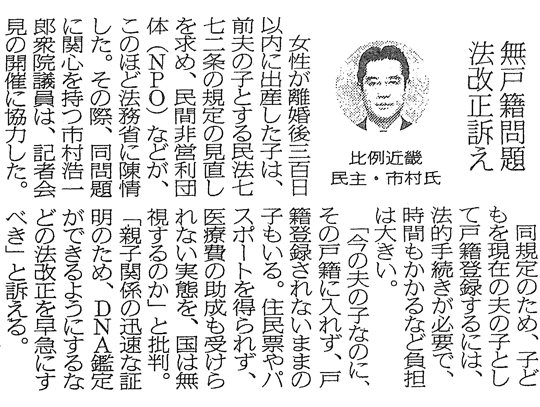 無戸籍問題
法改正訴え
比例近畿
民主・市村氏
女性が離婚後三百日
以内に出産した子は、
前夫の子とする民法七
七二条の規定の見直し
を求め、民間非営利団
体（ＮＰＯ）などが、
このほど法務省に陳情
した。その際、同問題
に関心を持つ市村浩一
郎衆院議員は、記者会
見の開催に協力した。
同規定のため、子ど
もを現在の夫の子とし
て戸籍登録するには、
法的手続きが必要で、
時間もかかるなど負担
は大きい。
「今の夫の子なのに、
その戸籍に入れず、戸
籍登録されないままの
子もいる。住民票やパ
スポートを得られず、
医療費の助成も受けら
れない実態を、国は無
視するのか」と批判。
「親子関係の迅速な証
明のため、ＤＮＡ鑑定
ができるようにするな
どの法改正を早急にす
べき」と訴える。